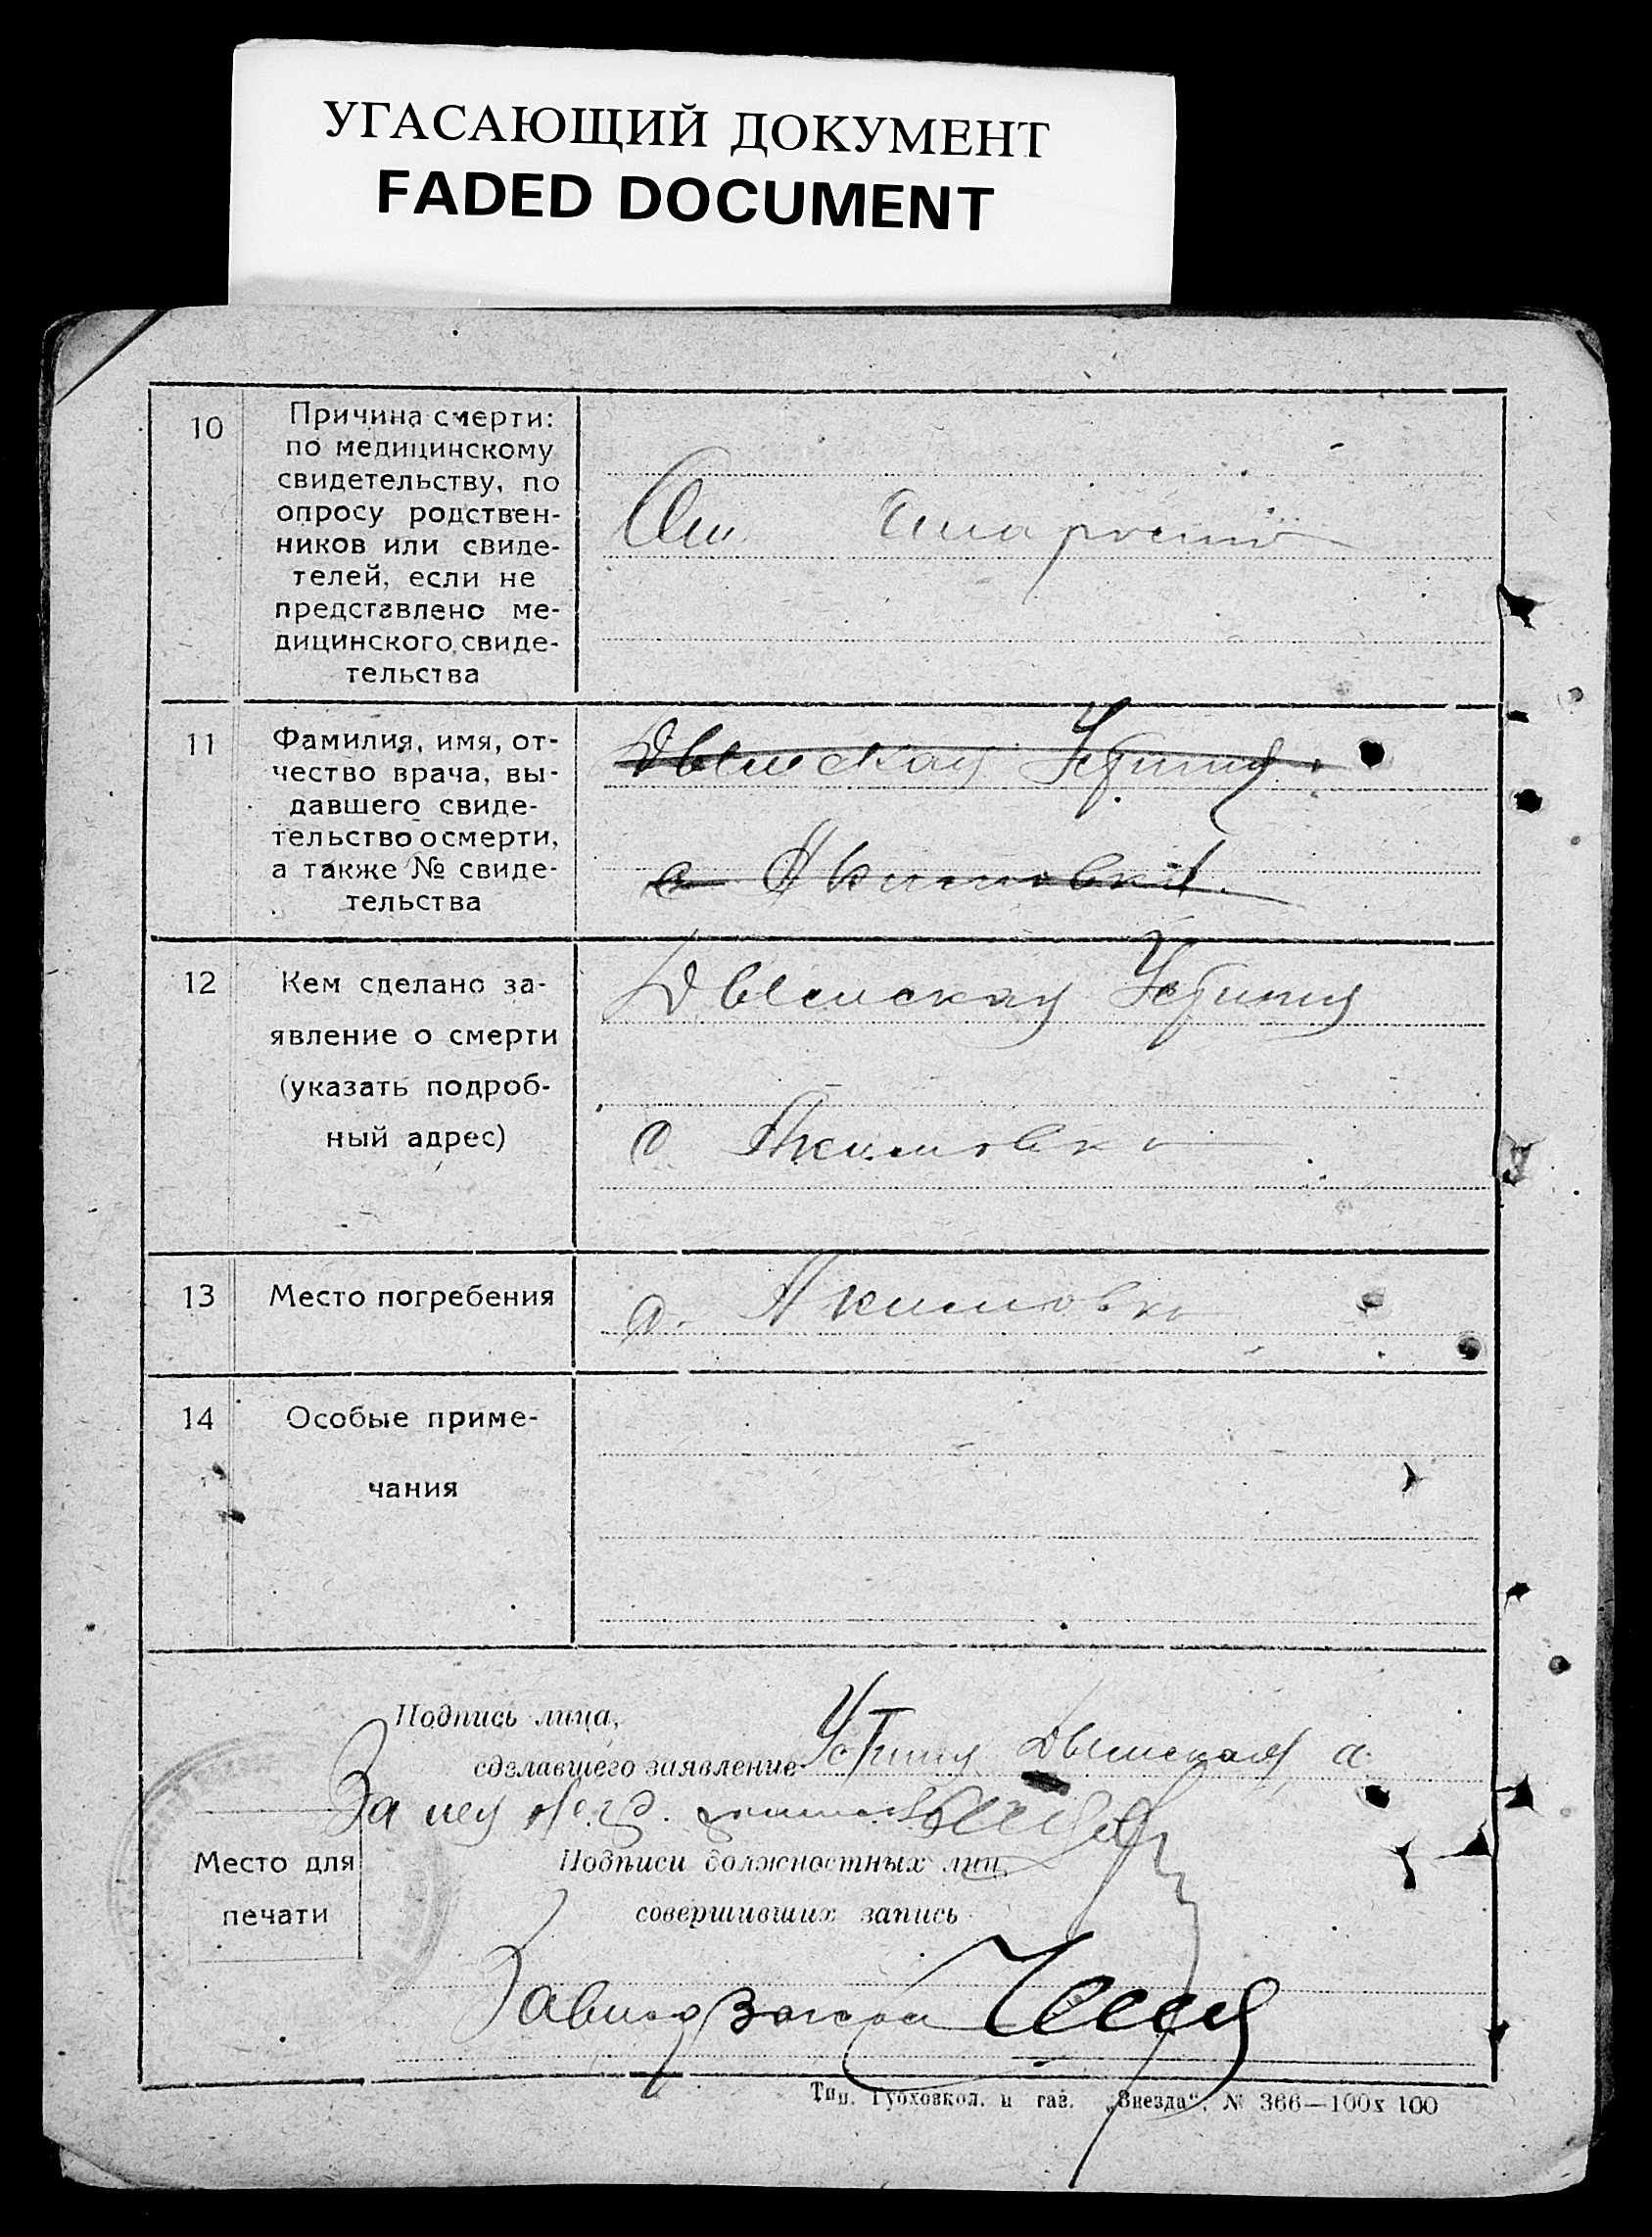 УГАСАЮЩИЙ ДОКУМЕНТ
FADED DOCUMENT
10
Причина смерти:
по медицинскому
свидетельству, по
опросу родствен-
ников или свиде-
телей, если не
представлено ме-
дицинского свиде-
тельства
От старости
11
Фамилия, имя, от-
чество врача, вы-
давшего свиде-
тельство о смерти,
а также № свиде-
тельства
Устиния
с Якимовка
12
Кем сделано за-
явление о смерти
(указать подроб-
ный адрес)
Устиния
с Якимовка
13
Место погребения
с. Якимовка
14
Особые приме-
чания
Подпись лица,
сделавшего заявление
Устиния а
За нея
Место для
печати
Подписи должностных лиц,
совершивших запись
Тип. Губховкол. и газ. „Звезда“. № 366—100х100